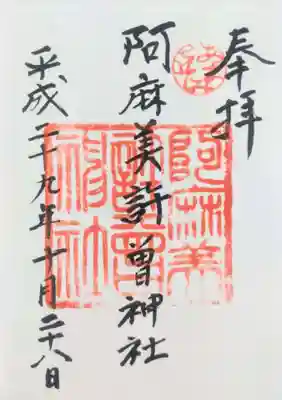 奉拝
阿麻美許曽神社
平成二十九年十月二十八日